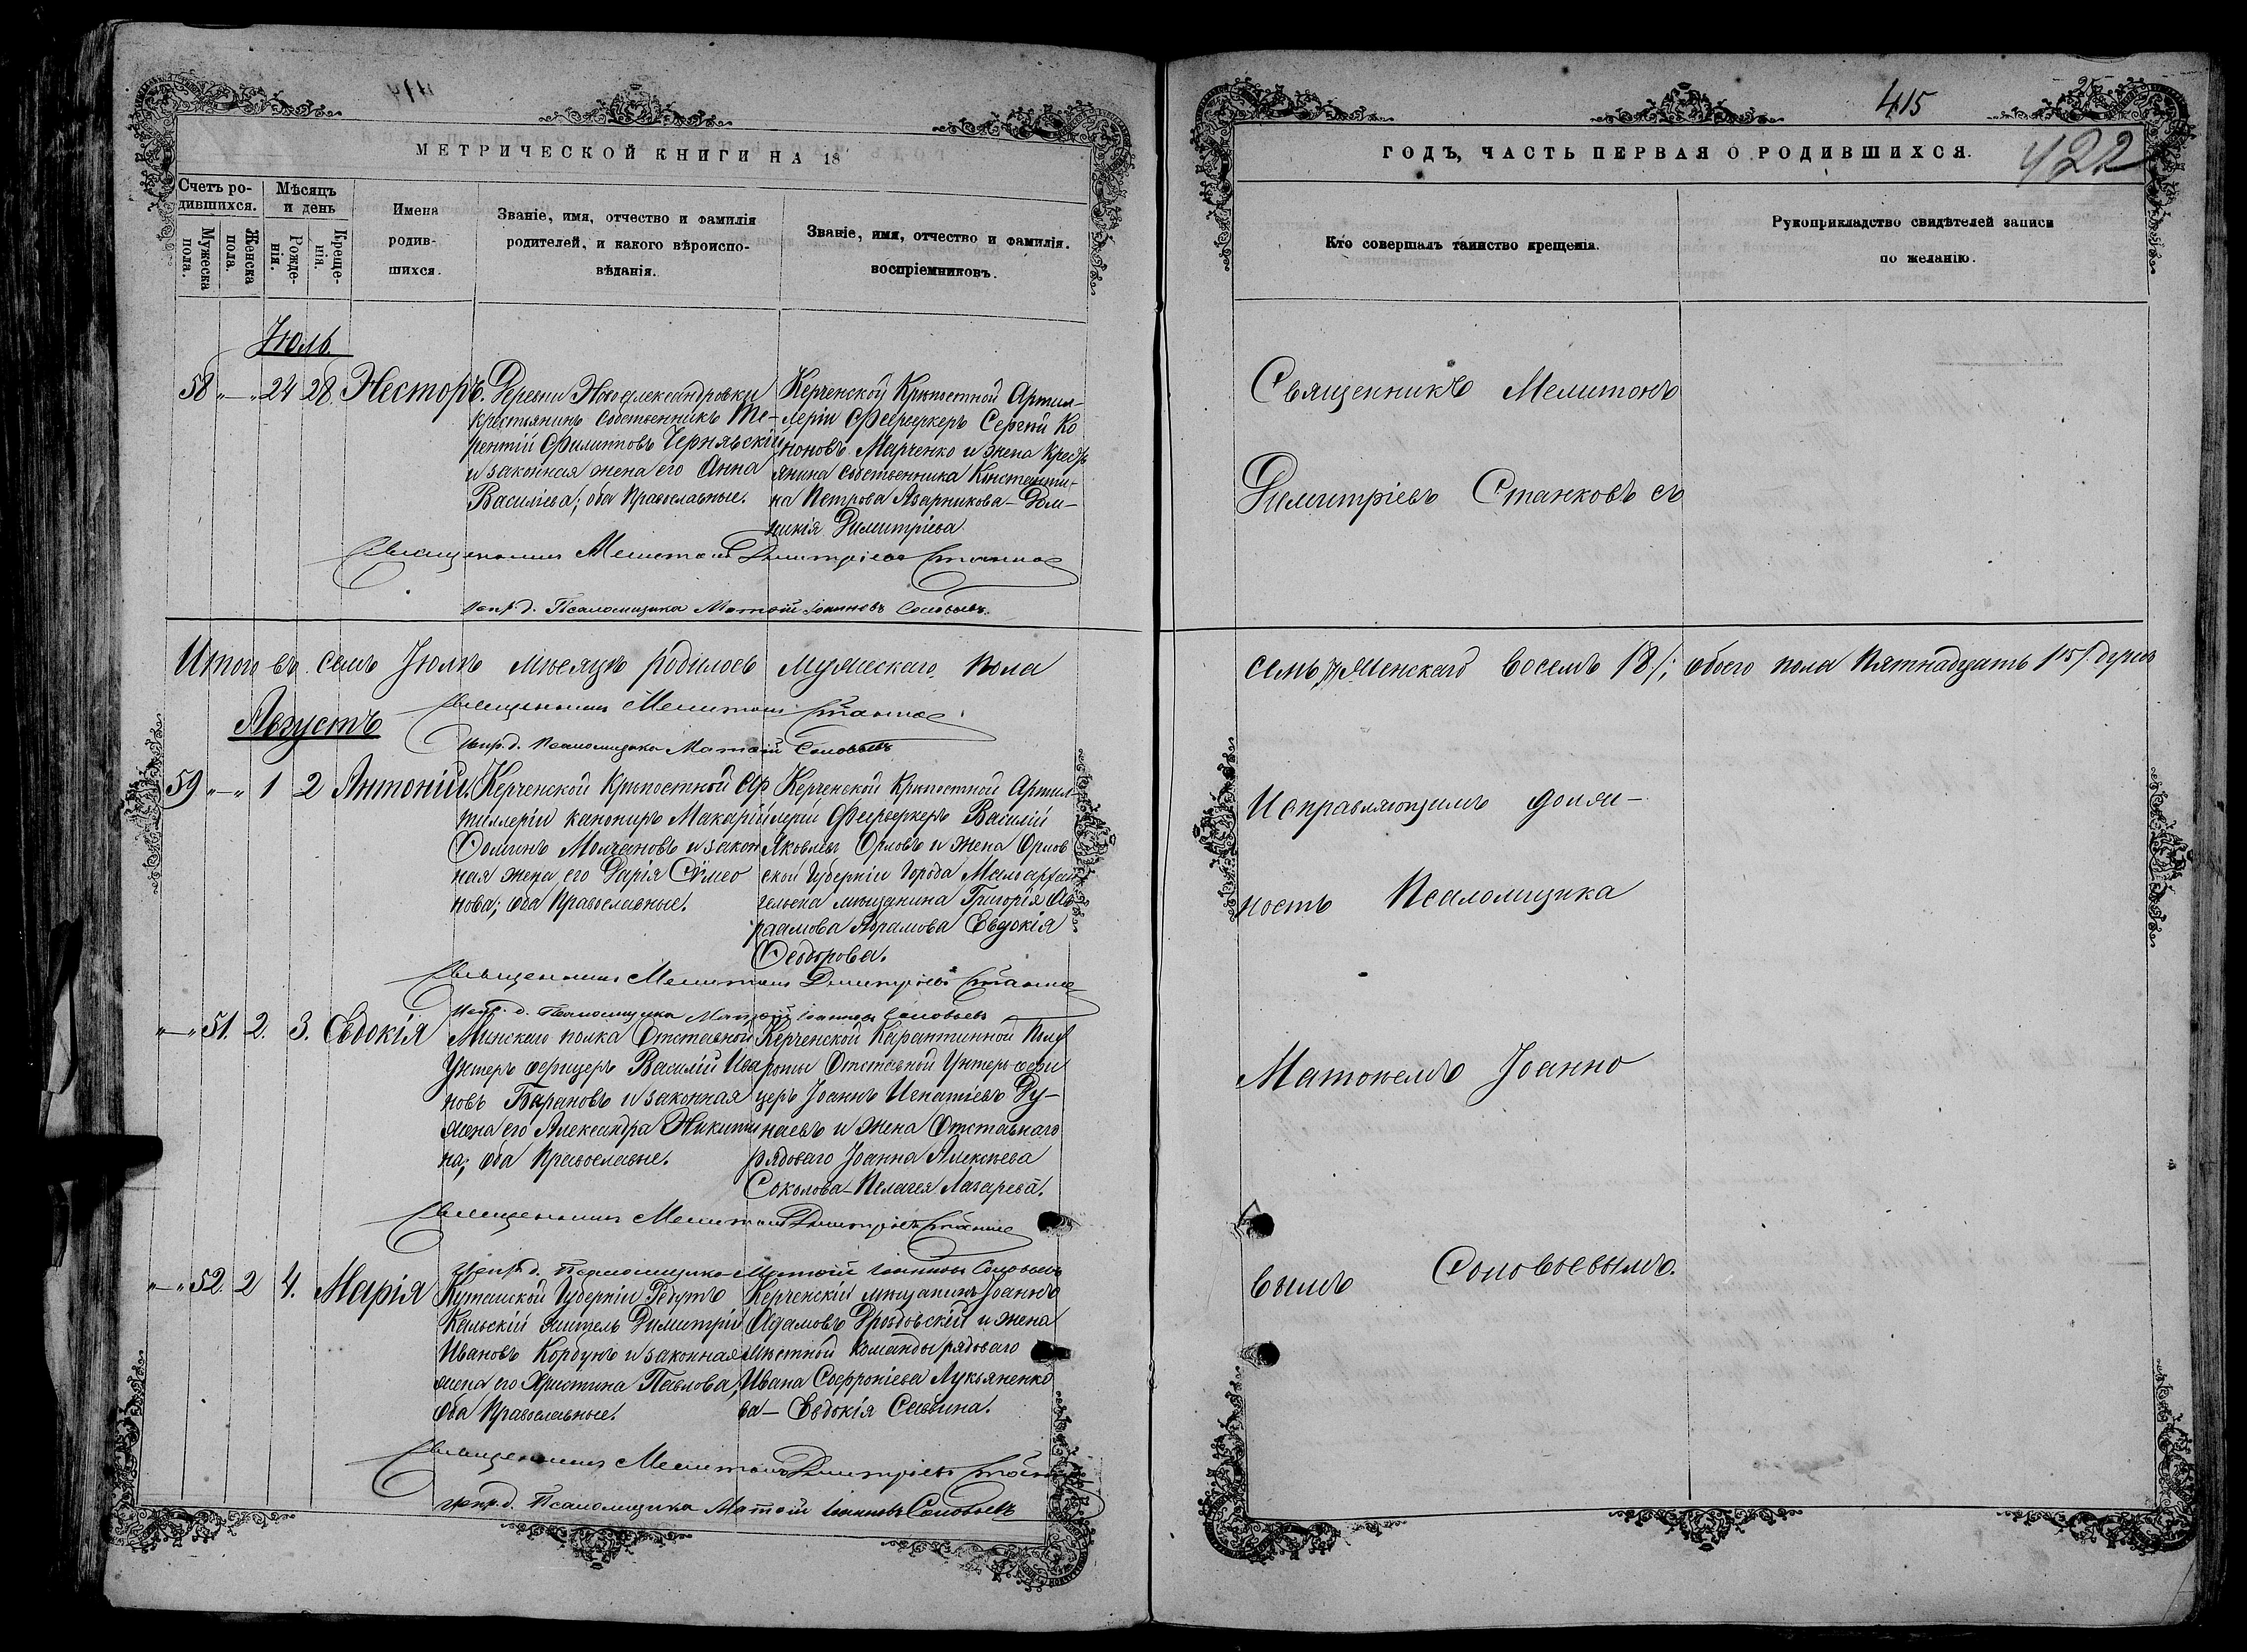 414
МЕТРИЧЕСКОЙ КНИГИ НА 18
Счетъ ро-
дившихся.
Мужеска пола.
Женска пола.
Мѣсяцъ
и день
Рожде-
нія.
Креще-
нія.
Имена
родив-
шихся.
Званіе, имя, отчество и фамилія
родителей, и какого вѣроиспо-
вѣданія.
Званіе, имя, отчество и фамилія.
воспріемниковъ.
Іюль.
58 „—„ 24 28 Несторъ.
Деревни Новоалександровки
крестьянинъ собственникъ Те-
рентій Филипповъ Чернявскій
и законная жена его Анна
Васильева; оба Православные.
Керченской Крѣпостной Артил-
леріи Феерверкеръ Сергѣй Ко
ноновъ Марченко и жена крестъ
янина собственника Константи-
на Петрова Азарникова – Дом-
никія Димитріева
Священникъ Мелитонъ Димитріевъ Станковъ
Испр. д. Псаломщика Матѳій Іоанновъ Соловьевъ.
Итого въ семъ Іюлѣ мѣсяцѣ родилось мужескаго пола
Священникъ Мелитонъ Станковъ
Испр. д. Псаломщика Матѳій Соловьевъ
Августъ
59 „—„ 1 2 Антоній.
Керченской Крѣпостной Ар
тиллеріи канониръ Макарій
Ѳоминъ Молчановъ и закон
ная жена его Дарія Симео
нова; оба Православные.
Керченской Крѣпостной Артил-
леріи Феерверкеръ Василій
Яковлевъ Орловъ и жена Орлов
ской Губерніи Города Малоархан-
гельска мѣщанина Григорія Ав
раамова Абрамова Евдокія
Ѳеодорова.
Священникъ Мелитонъ Димитріевъ Станковъ
Испр. д. Псаломщика Матѳій Іоанновъ Соловьевъ
„—„ 51. 2. 3. Евдокія
Минскаго полка Отставной
Унтеръ офицеръ Василій Ива
новъ Барановъ и законная
жена его Александра Никити
на; оба Православные.
Керченской Карантинной Полу
роты Отставной Унтеръ-офи
церъ Іоаннъ Игнатіевъ Ду-
наевъ и жена Отставнаго
рядоваго Іоанна Алексѣева
Соколова – Пелагея Лазарева.
Священникъ Мелитонъ Димитріевъ Станковъ
Испр. д. Псаломщика Матѳій Іоанновъ Соловьевъ
„—„ 52. 2 4. Марія
Кутаиской Губерніи
житель Димитрій
Ивановъ Корбунъ и законная
жена его Христина Павлова;
оба Православные.
Керченскій мѣщанинъ Іоаннъ
Адамовъ Дроздовскій и жена
мѣстной команды рядоваго
Ивана Софроніева Лукьяненко
ва – Евдокія Саввина.
Священникъ Мелитонъ Димитріевъ Станковъ
Испр. д. Псаломщика Матѳій Іоанновъ Соловьевъ
415
422
ГОДЪ, ЧАСТЬ ПЕРВАЯ О РОДИВШИХСЯ.
Кто совершалъ таинство крещенія.
Рукоприкладство свидѣтелей записи
по желанію.
Священникъ Мелитонъ
Димитріевъ Станковъ съ
семь /7/ Женскаго восемь /8/; обоего пола пятнадцать /15/ душъ
Исправляющимъ долж-
ность Псаломщика
Матѳіемъ Іоанно
вымъ Соловьевымъ.